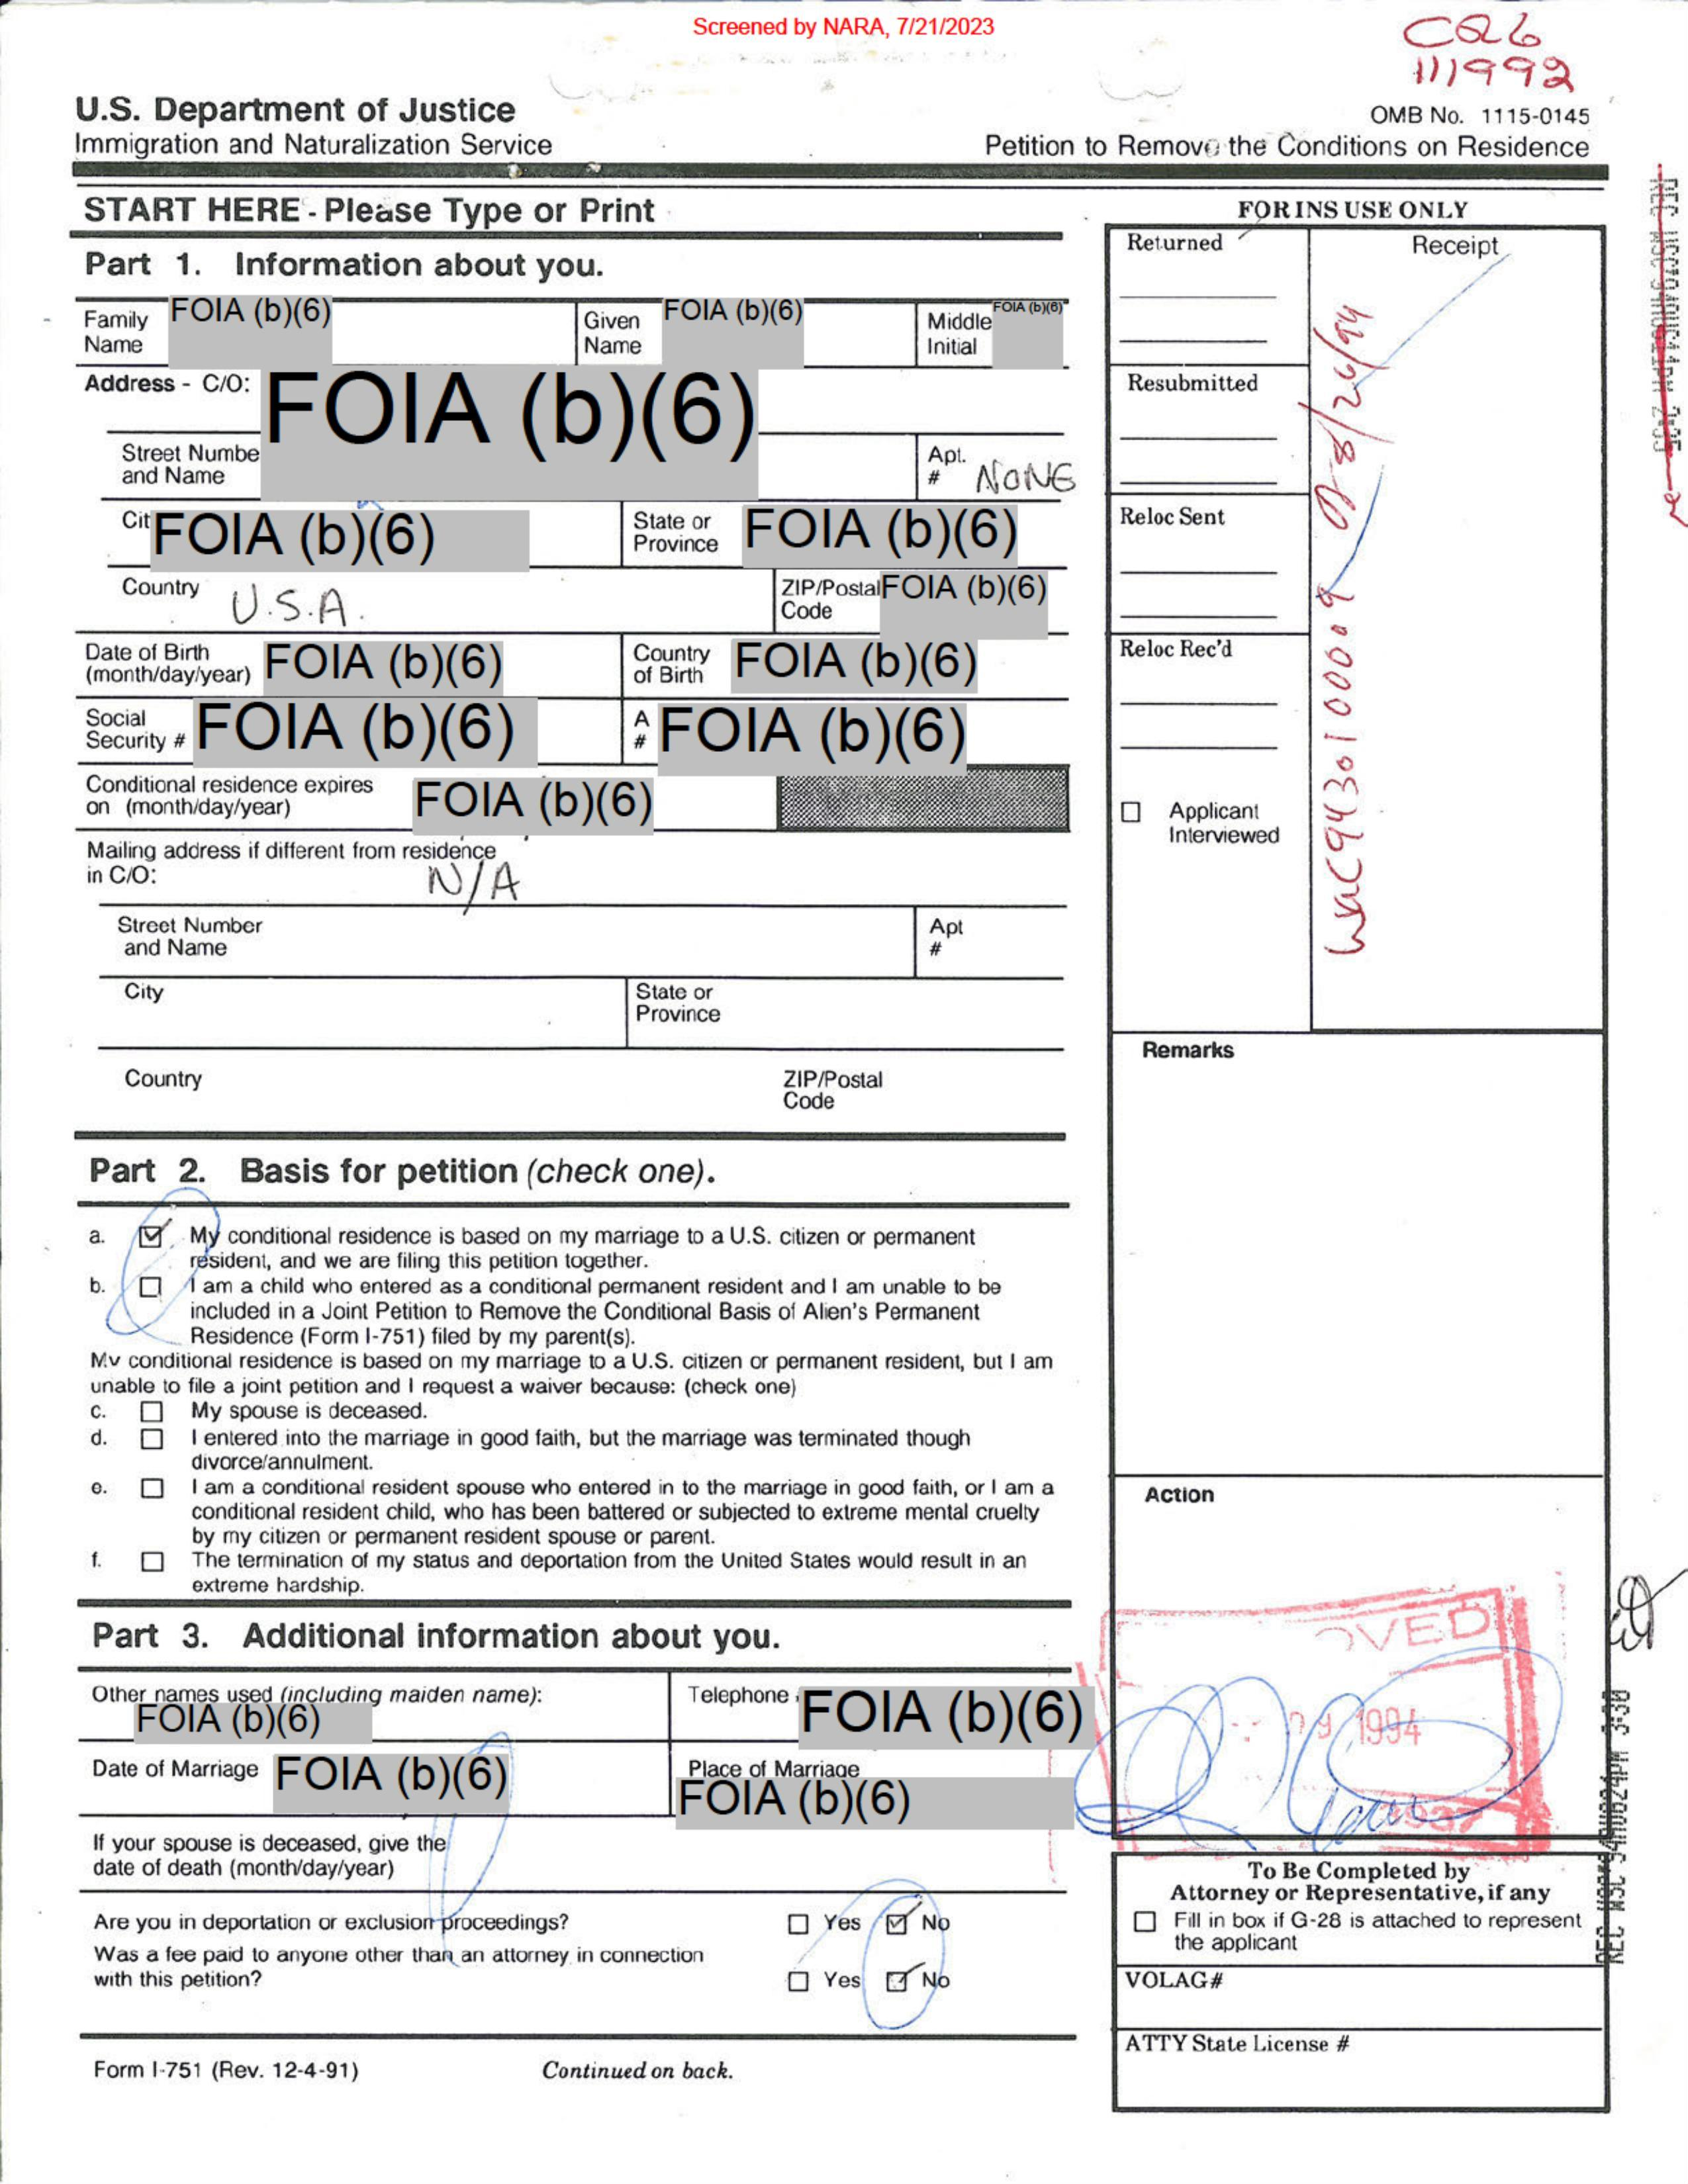 Screened by NARA, 7/21/2023
CQ6
111992
U.S. Department of Justice
Immigration and Naturalization Service
OMB No. 1115-0145
Petition to Remove the Conditions on Residence
START HERE - Please Type or Print
Part 1. Information about you.
Family Name FOIA (b)(6)
Given Name FOIA (b)(6)
Middle Initial FOIA (b)(6)
Address - C/O: FOIA (b)(6)
Street Numbe
and Name
Apt. # NONE
Cit FOIA (b)(6)
State or Province FOIA (b)(6)
Country U.S.A.
ZIP/Postal Code FOIA (b)(6)
Date of Birth (month/day/year) FOIA (b)(6)
Country of Birth FOIA (b)(6)
Social Security # FOIA (b)(6)
A # FOIA (b)(6)
Conditional residence expires on (month/day/year) FOIA (b)(6)
Mailing address if different from residence
in C/O: N/A
Street Number and Name
Apt #
City
State or Province
Country
ZIP/Postal Code
Part 2. Basis for petition (check one).
a. My conditional residence is based on my marriage to a U.S. citizen or permanent
resident, and we are filing this petition together.
b. I am a child who entered as a conditional permanent resident and I am unable to be
included in a Joint Petition to Remove the Conditional Basis of Alien's Permanent
Residence (Form I-751) filed by my parent(s).
My conditional residence is based on my marriage to a U.S. citizen or permanent resident, but I am
unable to file a joint petition and I request a waiver because: (check one)
c. My spouse is deceased.
d. I entered into the marriage in good faith, but the marriage was terminated though
divorce/annulment.
e. I am a conditional resident spouse who entered in to the marriage in good faith, or I am a
conditional resident child, who has been battered or subjected to extreme mental cruelty
by my citizen or permanent resident spouse or parent.
f. The termination of my status and deportation from the United States would result in an
extreme hardship.
Part 3. Additional information about you.
Other names used (including maiden name):
FOIA (b)(6)
Telephone FOIA (b)(6)
Date of Marriage FOIA (b)(6)
Place of Marriage
FOIA (b)(6)
If your spouse is deceased, give the
date of death (month/day/year)
Are you in deportation or exclusion proceedings? Yes No
Was a fee paid to anyone other than an attorney in connection
with this petition? Yes No
Form I-751 (Rev. 12-4-91)
Continued on back.
FOR INS USE ONLY
Returned
Receipt
Resubmitted
Reloc Sent
Reloc Rec'd
Applicant
Interviewed
WAC9430100009 08/26/94
Remarks
Action
OVED
1994
To Be Completed by
Attorney or Representative, if any
Fill in box if G-28 is attached to represent
the applicant
VOLAG#
ATTY State License #
REC WSC 94AUG24PM 3:30